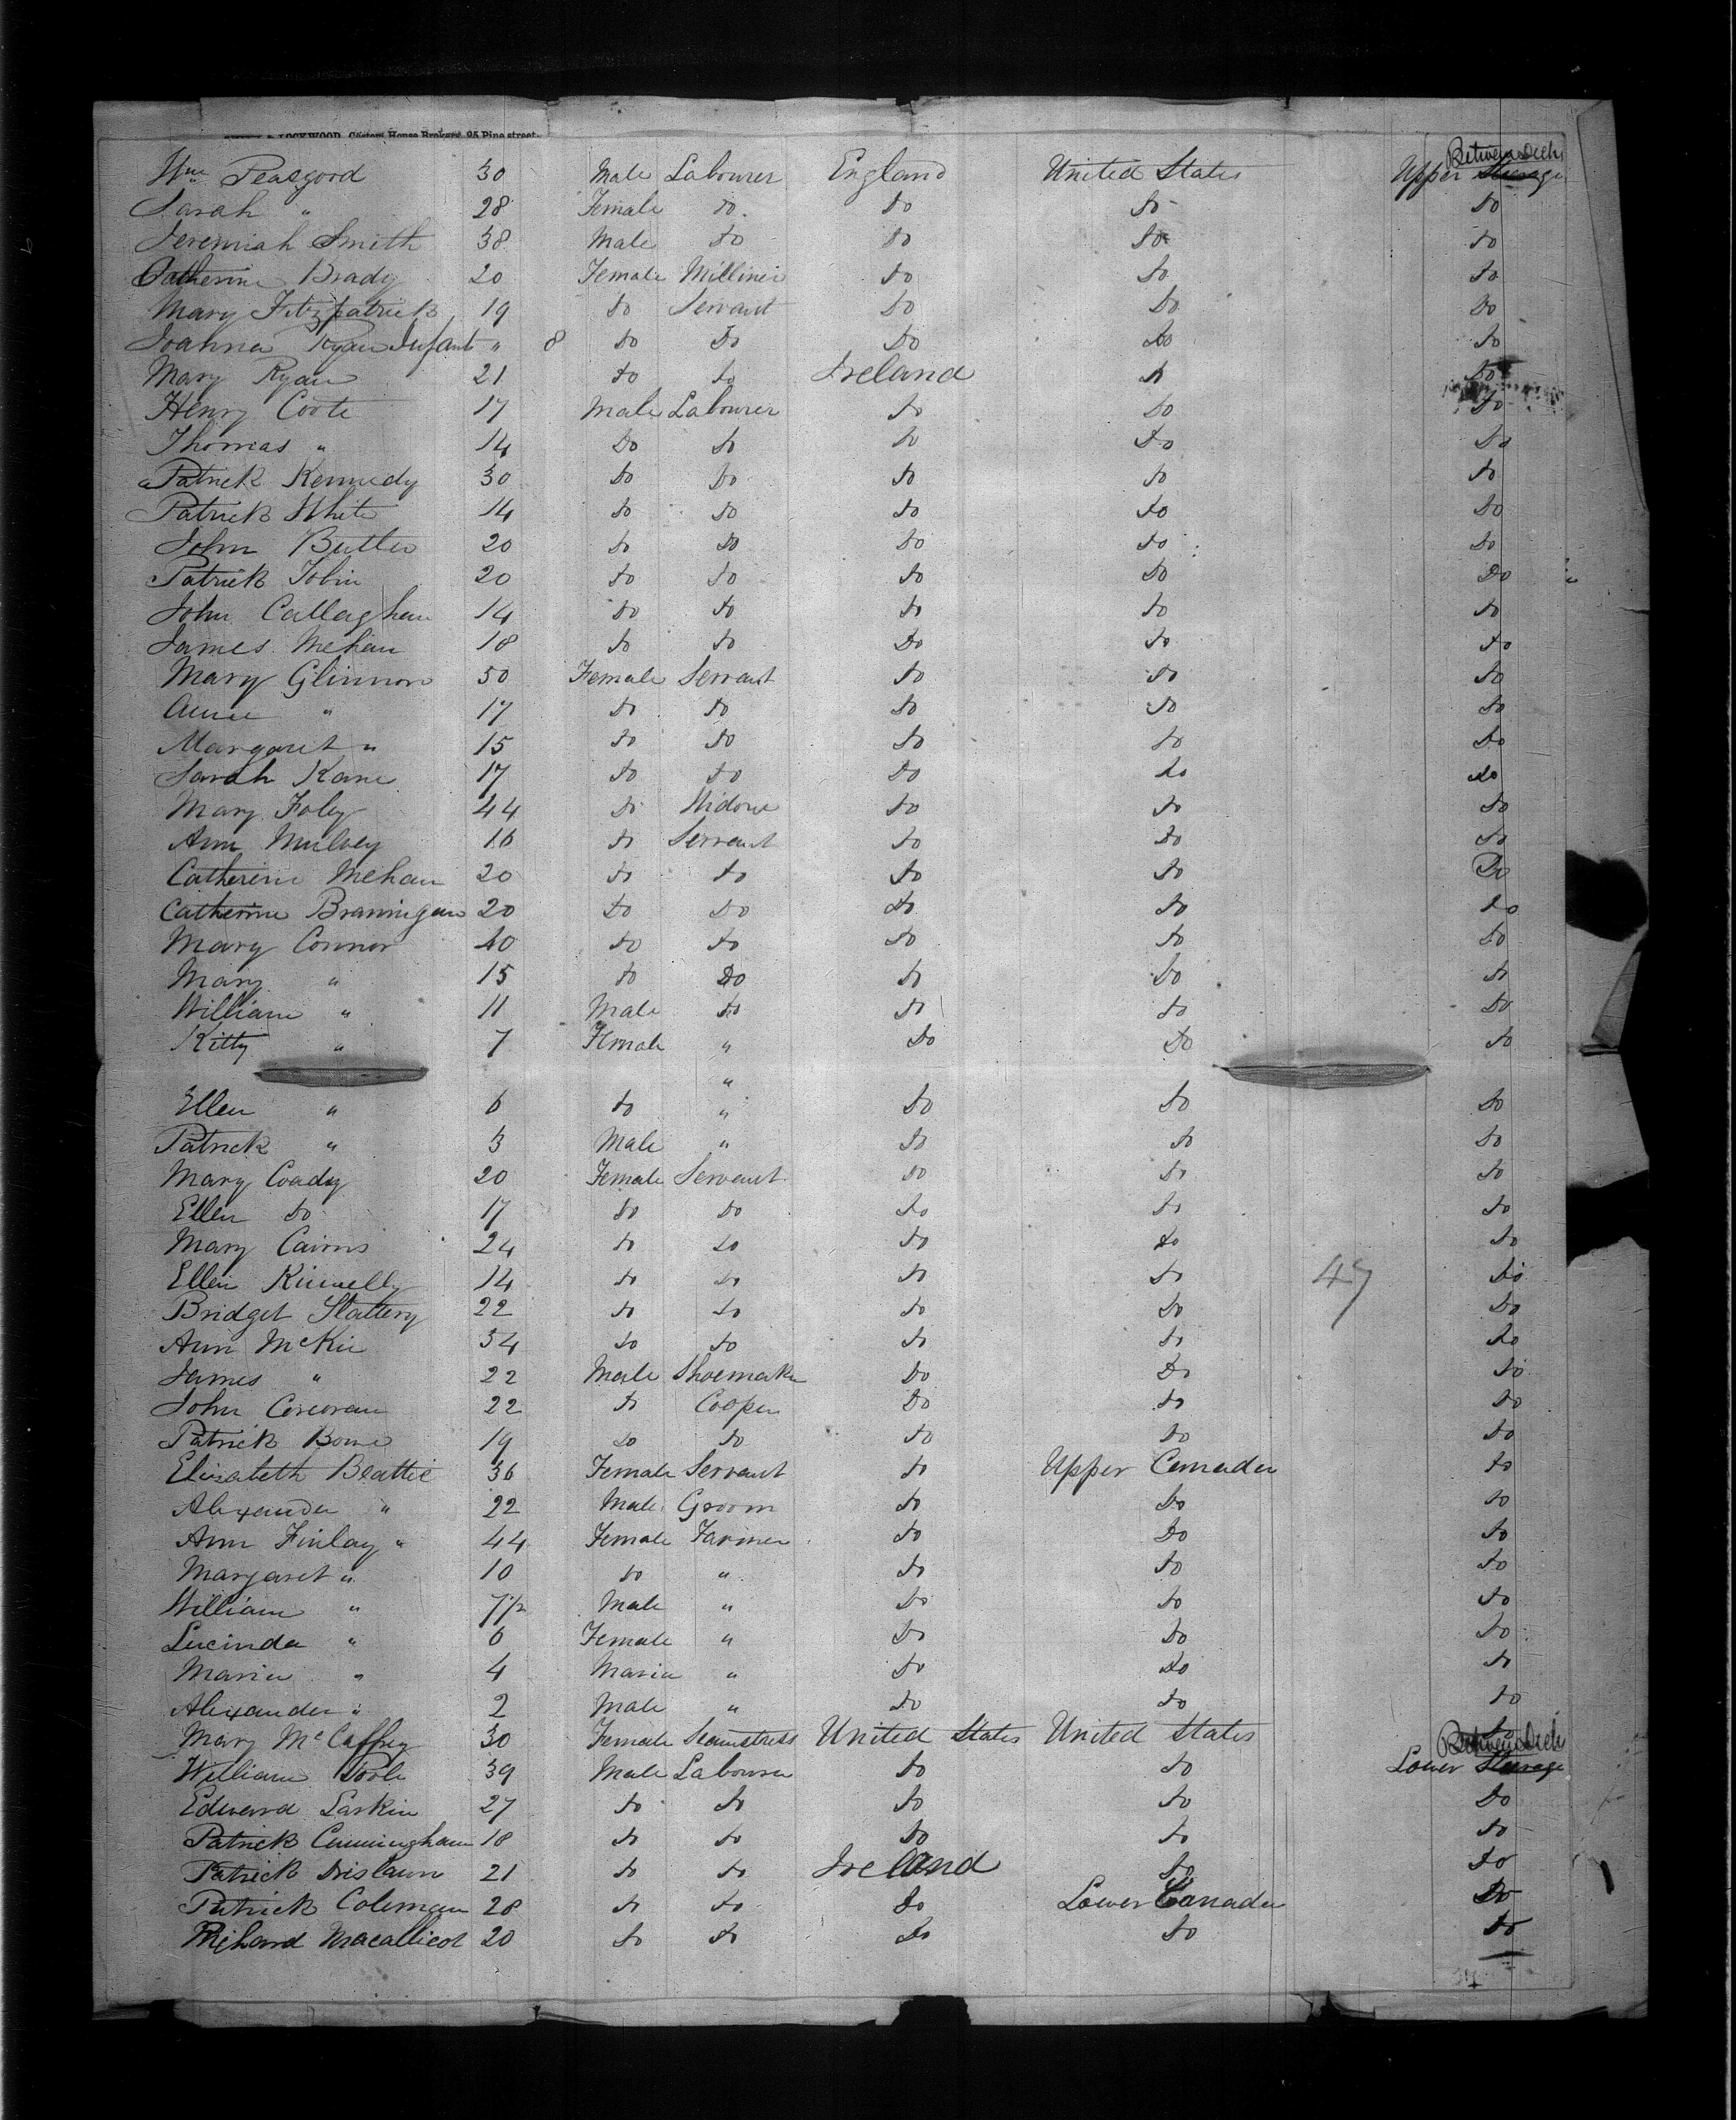 LOCKWOOD, Custom House Brokers, 95 Pine street
Between Deck
Wm Peasgood 30 Male Labourer England United States Upper Steerage
Sarah " 28 Female do do do do
Jeremiah Smith 38 Male do do do do
Catherine Brady 20 Female Milliner do do do
Mary Fitzpatrick 19 do Servant do do do
Joahna Ryan Infant " 8 do do do do do
Mary Ryan 21 do do Ireland do do
Henry Coote 17 Male Labourer do do do
Thomas " 14 do do do do do
Patrick Kennedy 30 do do do do do
Patrick White 14 do do do do do
John Butler 20 do do do do do
Patrick Tobin 20 do do do do do
John Callaghan 14 do do do do do
James Mehan 18 do do do do do
Mary Glinnon 50 Female Servant do do do
Anne " 17 do do do do do
Margaret " 15 do do do do do
Sarah Kane 17 do do do do do
Mary Foley 44 do Widow do do do
Ann Mulvey 16 do Servant do do do
Catherine Mehan 20 do do do do do
Catherine Brannigan 20 do do do do do
Mary Connor 40 do do do do do
Mary " 15 do do do do do
William " 11 Male do do do do
Kitty " 7 Female " do do do
"
Ellen " 6 do " do do do
Patrick " 3 Male " do do do
Mary Coady 20 Female Servant do do do
Ellen do 17 do do do do do
Mary Cairns 24 do do do do do
Ellen Kinnelly 14 do do do do 47 do
Bridget Slattery 22 do do do do do
Ann McKie 34 do do do do do
James " 22 Male Shoemaker do do do
John Corcoran 22 do Cooper do do do
Patrick Bowe 19 do do do do do
Elizabeth Beattie 36 Female Servant do Upper Canada do
Alexander " 22 Male Groom do do do
Ann Finlay " 44 Female Farmer do do do
Margaret " 10 do " do do do
William " 7½ Male " do do do
Lucinda " 6 Female " do do do
Maria " 4 Maria " do do do
Alexander " 2 Male " do do do
Mary McCaffrey 30 Female Seamstress United States United States do
Between Deck
William Poole 39 Male Labourer do do Lower Steerage
Edward Larkin 27 do do do do do
Patrick Cunningham 18 do do do do do
Patrick Drislawn 21 do do Ireland do do
Patrick Coleman 28 do do do Lower Canada do
Richard Macallicot 20 do do do do do